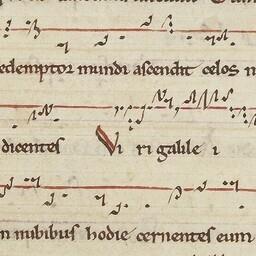 edemptor mundi ascendit celos
dicentes Vi ri galile i
nubibus hodie cernentes eum